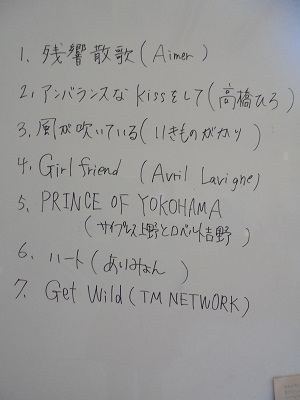 1. 残響散歌(Aimer)
2. アンバランスなkissをして(高橋ひろ)
3. 風が吹いている(いきものがかり)
4. Girl friend (Avril Lavigne)
5. PRINCE OF YOKOHAMA
(サイプレス上野とロベルト吉野)
6. ハート(あいみょん)
7. Get Wild (TM NETWORK)